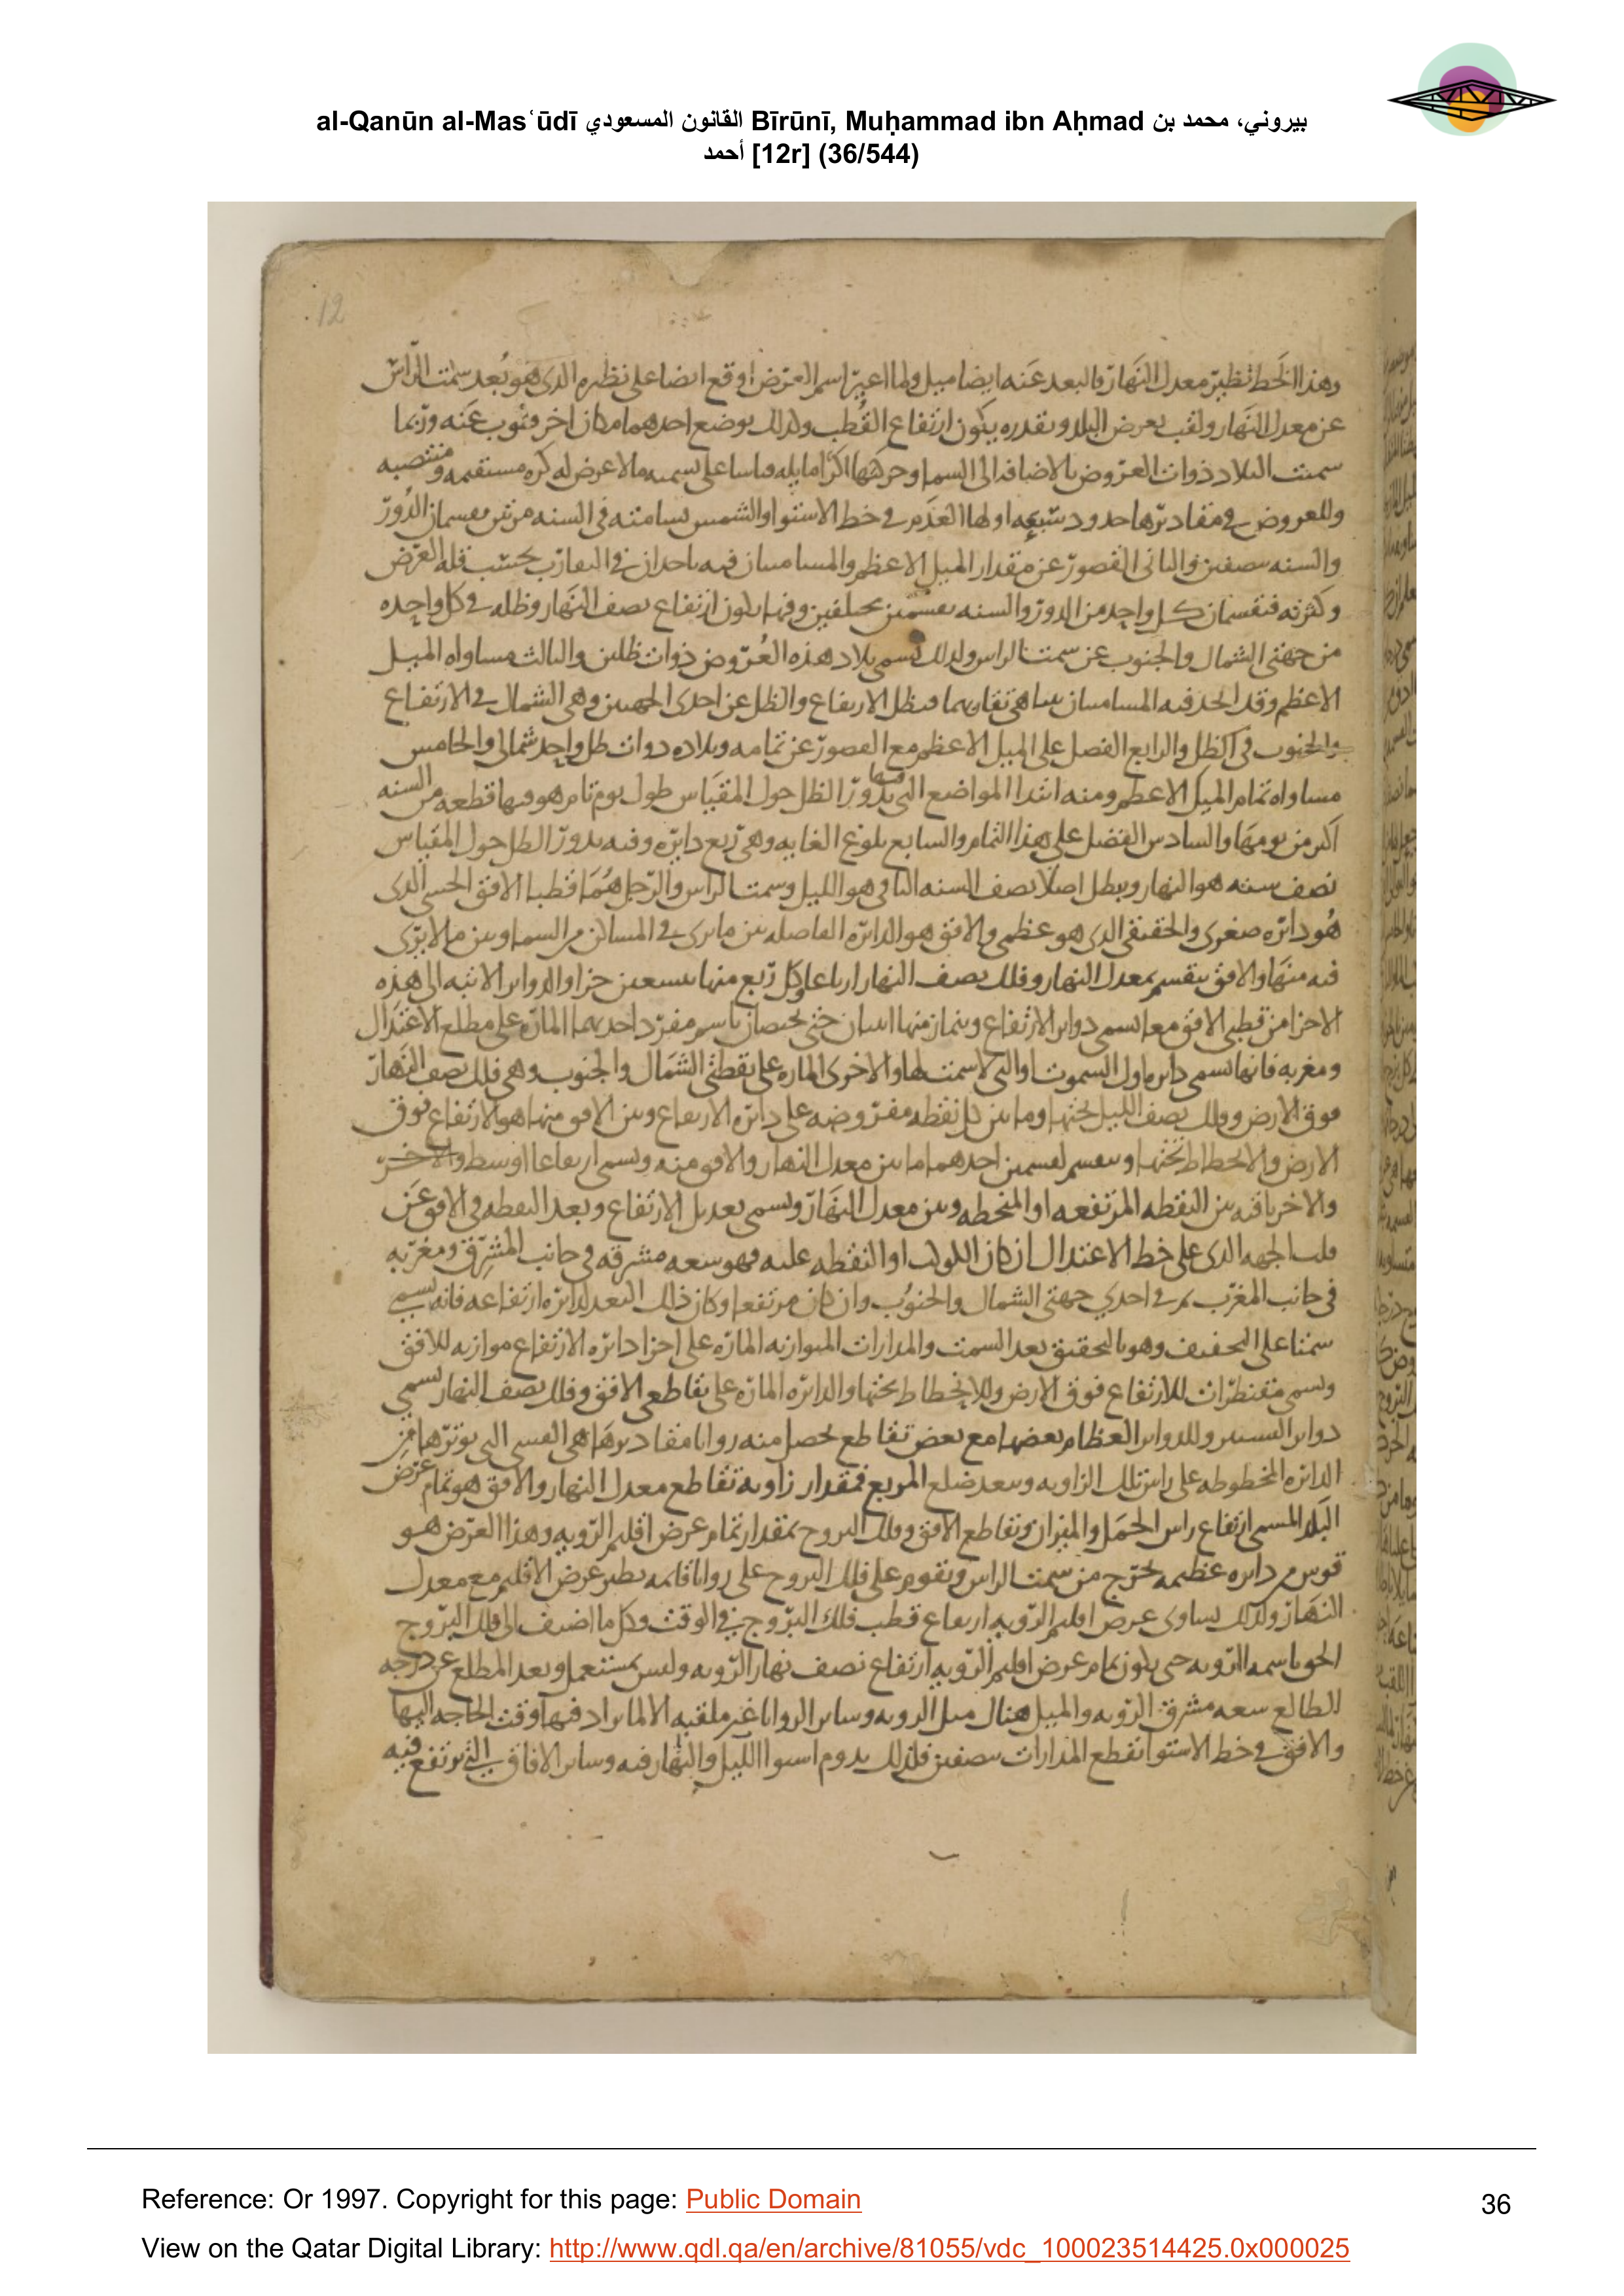 al-Qanūn al-Masʿūdī القانون المسعودي Bīrūnī, Muḥammad ibn Aḥmad بيروني، محمد بن
أحمد [12r] (36/544)
12
وهذا الخط نظير معدل النهار والبعد عنه ايضا ميل ولما اعير اسم العرض اوقع ايضا على نظيره الذي هو بعد سمت الراس
عن معدل النهار ولقب بعرض البلد وبقدره يكون ارتفاع القطب ولذلك يوضع احدهما مكان اخر وينوب عنه وربما
سميت البلاد ذوات العروض بالاضافة الى السما وحركتها اكرا مايله قياسا على تسميه ما لا عرض له كره مستقيمه ومنتصبه
وللعروض في مقاديرها حدود سبعه اولها العدم في خط الاستوا والشمس تسامته في السنه مرتين يقسمان الدور
والسنه بنصفين والثاني القصور عن مقدار الميل الاعظم والمسامتتان فيه ياخذان في التقارب بحسب قله العرض
وكثرته فتقسمان كل واحد من الدور والسنه بقسمين مختلفين وفيها يكون ارتفاع نصف النهار وظله في كل واحده
من جهتي الشمال والجنوب عن سمت الراس ولذلك تسمى بلاد هذه العروض ذوات ظلين والثالث مساواه الميل
الاعظم وقد اتحد فيه المسامتتان بتناهي تقاربهما فبطل الارتفاع والظل عن احدى الجهتين وهي الشمال في الارتفاع
والجنوب في الظل والرابع الفضل على الميل الاعظم مع القصور عن تمامه وبلاده ذوات ظل واحد شمالي والخامس
مساواه تمام الميل الاعظم ومنه ابتدا المواضع التي يدور فيها الظل حول المقياس طول يوم تام هو فيها قطعه من السنه
اكبر من يومها والسادس الفضل على هذا التمام والسابع بلوغ الغايه وهي ربع دايره وفيه يدور الظل حول المقياس
نصف سنه هو النهار ويبطل اصلا نصف السنه الباقي وهو الليل وسمت الراس والرجل هما قطبا الافق الحسي الذي
هو دائره صغرى والحقيقي الذي هو عظمى والافق هو الدائره الفاصله بين ما يرى في المساكن من السما وبين ما لا يرى
فيه منها والافق ينقسم بمعدل النهار وفلك نصف النهار ارباعا وكل ربع منها بتسعين جزا والدواير الاتيه الى هذه
الاجزا من قطبي الافق معا تسمى دواير الارتفاع وينماز منها اثنتان حتى تختصان باسم مفرد احديهما الماره على مطلع الاعتدال
ومغربه فانها تسمى دايره اول السموت والتي لا سمت لها والاخرى الماره على نقطتي الشمال والجنوب وهي فلك نصف النهار
فوق الارض وفلك نصف الليل تحتها وما بين كل نقطه مفروضه على دائره الارتفاع وبين الافق منها هو الارتفاع فوق
الارض والانحطاط تحتها وينقسم لقسمين احدهما ما بين معدل النهار والافق منه ويسمى ارتفاعا اوسط والاخر
والاخر باقيه بين النقطه المرتفعه او المنحطه وبين معدل النهار ويسمى تعديل الارتفاع وبعد النقطه في الافق عن
قلب الجهه الذي على خط الاعتدال ان كان الكوكب او النقطه عليه فهو سعه مشرقه في جانب المشرق ومغربه
في جانب المغرب ثم في احدى جهتي الشمال والجنوب وان كان مرتفعا وكان ذلك البعد لدائره ارتفاعه فانه يسمى
سمتا على التخفيف وهو بالتحقيق بعد السمت والمدارات المتوازيه الماره على اجزا دائره الارتفاع موازيه للافق
وتسمى مقنطرات للارتفاع فوق الارض وللانحطاط تحتها والدائره الماره على تقاطعي الافق وفلك نصف النهار تسمى
دواير السمت وللدواير العظام بعضها مع بعض تقاطع تحصل منه زوايا مقاديرها هي القسي التي توترها من
الدائره المخطوطه على راس تلك الزاويه وببعد ضلع المربع فمقدار زاويه تقاطع معدل النهار والافق هو تمام عرض
البلد المسمى ارتفاع راس الحمل والميزان وتقاطع الافق وفلك البروج بمقدار تمام عرض اقليم الرويه وهذا العرض هو
قوس من دايره عظيمه تخرج من سمت الراس وتقوم على فلك البروج على زوايا قائمه نظير عرض الاقليم مع معدل
النهار ولذلك يساوي عرض اقليم الرويه ارتفاع قطب فلك البروج في الوقت وكل ما اضيف الى فلك البروج
الحق باسمه الرويه حتى يكون تمام عرض اقليم الرويه ارتفاع نصف نهار الرويه وليس بمستعمل وبعد المطلع عن درجه
الطالع سعه مشرق الرويه والميل هنالك ميل الرويه وساير الزوايا غير ملقبه الا لما يراد فيها وقت الحاجه اليها
والافق في خط الاستوا يقطع المدارات بنصفين فلذلك يدوم استوا الليل والنهار فيه وساير الافاق التي يرتفع فيه
Reference: Or 1997. Copyright for this page: Public Domain
36
View on the Qatar Digital Library: http://www.qdl.qa/en/archive/81055/vdc_100023514425.0x000025